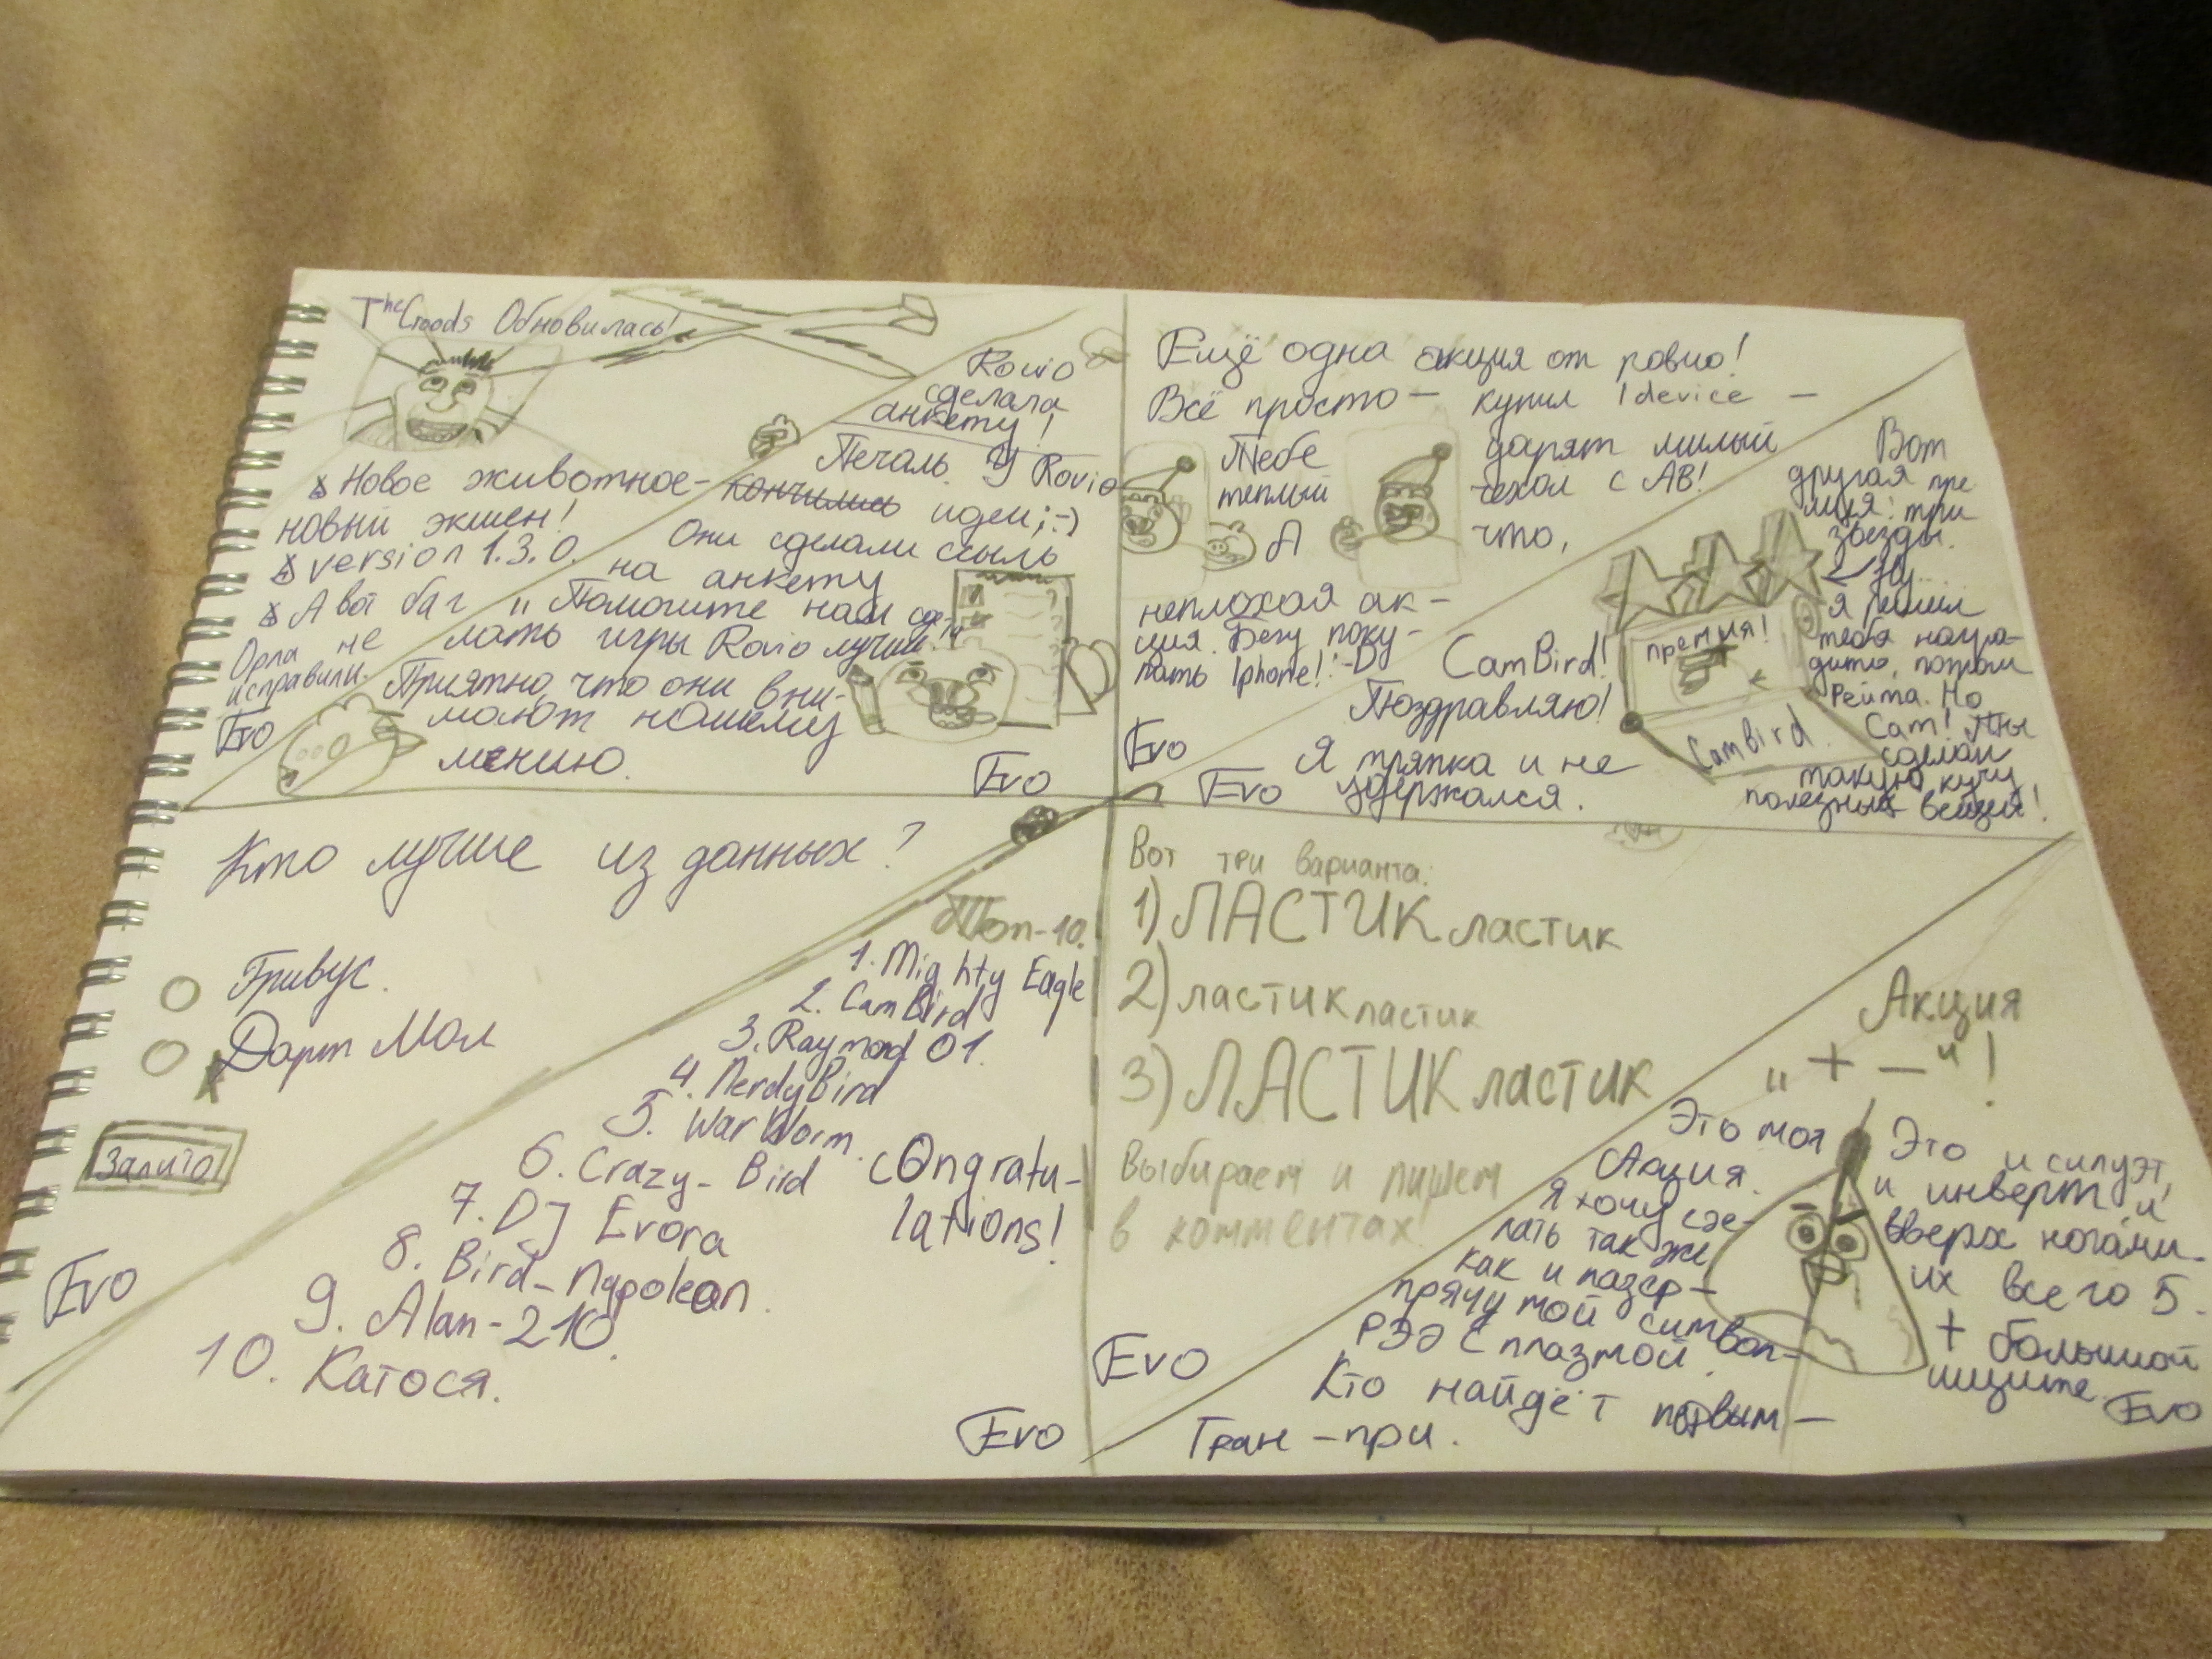 The Croods Обновилась!
Новое животное-
новый экшен!
version 1.3.0.
А вот баг
Орла не
исправили.
Evo
Rovio
сделала
анкету!
Печаль. У Rovio
кончились идеи ;-)
Они сделали ссыль
на анкету
„Помогите нам сде-
лать игры Rovio лучше."
Приятно, что они вни-
мают нашему
мению.
Evo
Ещё одна акция от ровио!
Всё просто - купил Idevice -
Тебе
теплый
дарят милый
чехол с АВ!
А что,
неплохая ак-
ция. Бегу поку-
пать Iphone! :-D
Evo
Вот
другая пре
мия: три
звезды.
Ну...
я решил
тебя награ-
дить, потом
Рейта. Но
Cam! Ты
сделал
такую кучу
полезных вещей!
премия!
CamBird.
CamBird!
Поздравляю!
Я тряпка и не
удержался.
Evo
Кто лучше из данных?
Гривус.
Дарт Мол
Залито
Evo
Топ-10.
1. Mighty Eagle
2. CamBird
3. Raymond 01.
4. NerdyBird
5. WarWorm.
6. Crazy-Bird
7. DJ Evora
8. Bird-Napolean.
9. Alan-210.
10. Катося.
cOngratu-
lations!
Evo
Вот три варианта:
1) ЛАСТИК ластик
2) ластик ластик
3) ЛАСТИК ластик
Выбираем и пишем
в комментах
Evo
Акция
„ + — " !
Это моя
Акция.
Я хочу сде-
лать так же
как и пазер-
прячу мой символ-
РЭД с плазмой.
Кто найдёт первым —
Гран-при.
Это и силуэт,
и инверт и
вверх ногами.
их всего 5.
+ большой
ищите.
Evo